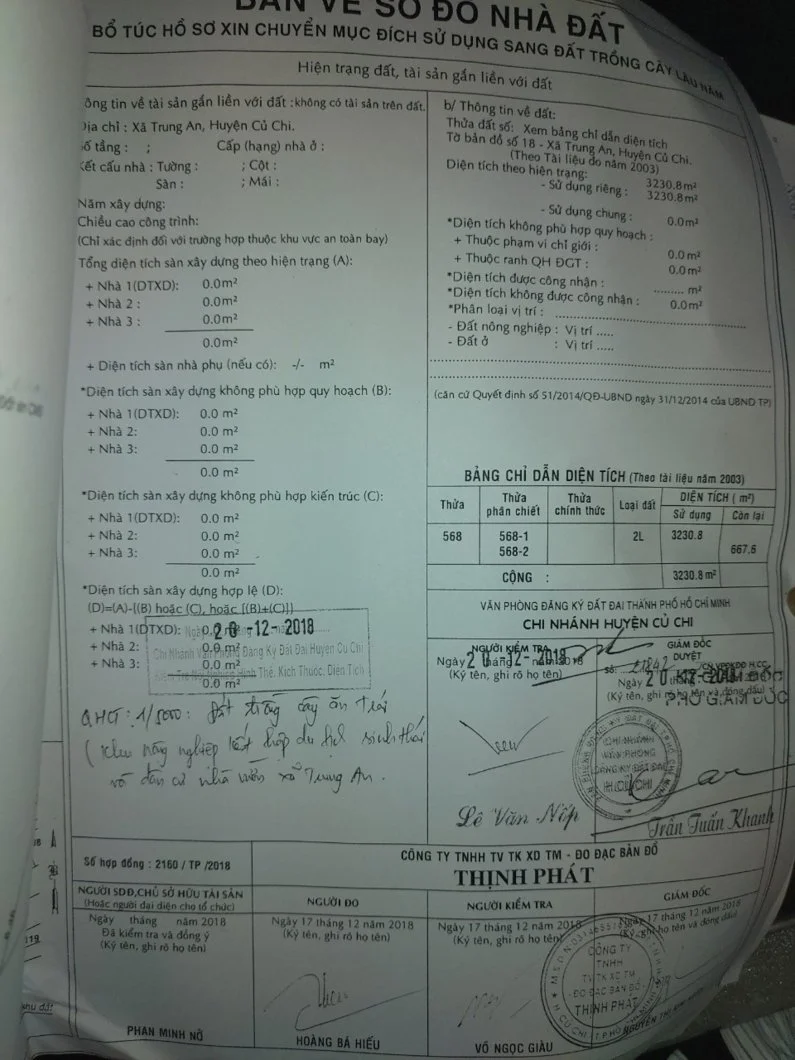 BẢN VẼ SƠ ĐỒ NHÀ ĐẤT
BỔ TÚC HỒ SƠ XIN CHUYỂN MỤC ĐÍCH SỬ DỤNG SANG ĐẤT TRỒNG CÂY LÂU NĂM
Hiện trạng đất, tài sản gắn liền với đất
ông tin về tài sản gắn liền với đất : không có tài sản trên đất.
Địa chỉ : Xã Trung An, Huyện Củ Chi.
Số tầng : ; Cấp (hạng) nhà ở :
Kết cấu nhà : Tường : ; Cột :
Sàn : ; Mái :
Năm xây dựng:
Chiều cao công trình:
(Chỉ xác định đối với trường hợp thuộc khu vực an toàn bay)
Tổng diện tích sàn xây dựng theo hiện trạng (A):
+ Nhà 1(DTXD): 0.0m²
+ Nhà 2 : 0.0m²
+ Nhà 3 : 0.0m²
0.0m²
+ Diện tích sàn nhà phụ (nếu có): -/- m²
*Diện tích sàn xây dựng không phù hợp quy hoạch (B):
+ Nhà 1(DTXD): 0.0 m²
+ Nhà 2: 0.0 m²
+ Nhà 3: 0.0 m²
0.0 m²
*Diện tích sàn xây dựng không phù hợp kiến trúc (C):
+ Nhà 1(DTXD): 0.0 m²
+ Nhà 2: 0.0 m²
+ Nhà 3: 0.0 m²
0.0 m²
*Diện tích sàn xây dựng hợp lệ (D):
(D)=(A)-[(B) hoặc (C), hoặc [(B)+(C)]}
+ Nhà 1(DTXD): 0.0 m²
+ Nhà 2:
+ Nhà 3:
0.0 m²
Ngày 20 -12- 2018
Chi Nhánh Văn Phòng Đăng Ký Đất Đai Huyện Củ Chi
Hình Thể, Kích Thước, Diện Tích
QHCT: 1/5000: Đất trồng cây ăn trái
(khu nông nghiệp kết hợp du lịch sinh thái
và dân cư nhà vườn xã Trung An.
b/ Thông tin về đất:
Thửa đất số: Xem bảng chỉ dẫn diện tích
Tờ bản đồ số 18 - Xã Trung An, Huyện Củ Chi.
(Theo Tài liệu đo năm 2003)
Diện tích theo hiện trạng: 3230.8m²
- Sử dụng riêng : 3230.8m²
- Sử dụng chung : 0.0m²
*Diện tích không phù hợp quy hoạch :
+ Thuộc phạm vi chỉ giới : 0.0m²
+ Thuộc ranh QH ĐGT : 0.0m²
*Diện tích được công nhận : ......... m²
*Diện tích không được công nhận : 0.0m²
*Phân loại vị trí :
- Đất nông nghiệp : Vị trí .....
- Đất ở : Vị trí .....
(căn cứ Quyết định số 51/2014/QĐ-UBND ngày 31/12/2014 của UBND TP)
BẢNG CHỈ DẪN DIỆN TÍCH (Theo tài liệu năm 2003)
Thửa Thửa phân chiết Thửa chính thức Loại đất DIỆN TÍCH ( m²)
Sử dụng Còn lại
568 568-1 2L 3230.8
568-2 667.6
CỘNG : 3230.8 m²
VĂN PHÒNG ĐĂNG KÝ ĐẤT ĐAI THÀNH PHỐ HỒ CHÍ MINH
CHI NHÁNH HUYỆN CỦ CHI
NGƯỜI KIỂM TRA
Ngày 20 tháng 12 năm 2018
(Ký tên, ghi rõ họ tên)
GIÁM ĐỐC
DUYỆT
Số: /CN.VPĐKĐĐ H.CC
Ngày 20 -12- 2018
(Ký tên, ghi rõ họ tên và đóng dấu)
KT. GIÁM ĐỐC
PHÓ GIÁM ĐỐC
CHI NHÁNH
VĂN PHÒNG
ĐĂNG KÝ ĐẤT ĐAI
H.CỦ CHI
Lê Văn Nốp
Trần Tuấn Khanh
Số hợp đồng : 2160 / TP /2018
CÔNG TY TNHH TV TK XD TM - ĐO ĐẠC BẢN ĐỒ
THỊNH PHÁT
NGƯỜI SDĐ,CHỦ SỞ HỮU TÀI SẢN
(Hoặc người đại diện cho tổ chức)
NGƯỜI ĐO
NGƯỜI KIỂM TRA
GIÁM ĐỐC
Ngày tháng năm 2018
Đã kiểm tra và đồng ý
(Ký tên, ghi rõ họ tên)
Ngày 17 tháng 12 năm 2018
(Ký tên, ghi rõ họ tên)
Ngày 17 tháng 12 năm 2018
(Ký tên, ghi rõ họ tên)
Ngày 17 tháng 12 năm 2018
(Ký, ghi họ tên và đóng dấu)
CÔNG TY
TNHH
TV TK XD TM
- ĐO ĐẠC BẢN ĐỒ
THỊNH PHÁT
PHAN MINH NỞ
HOÀNG BÁ HIẾU
VÕ NGỌC GIÀU
NGUYỄN THỊ
khu đất